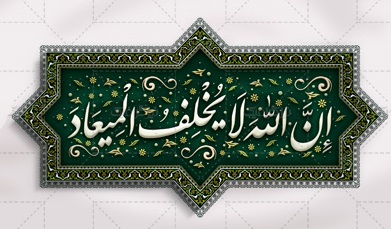 إِنَّ اللّٰهَ لَا يُخْلِفُ الْمِيعَاد